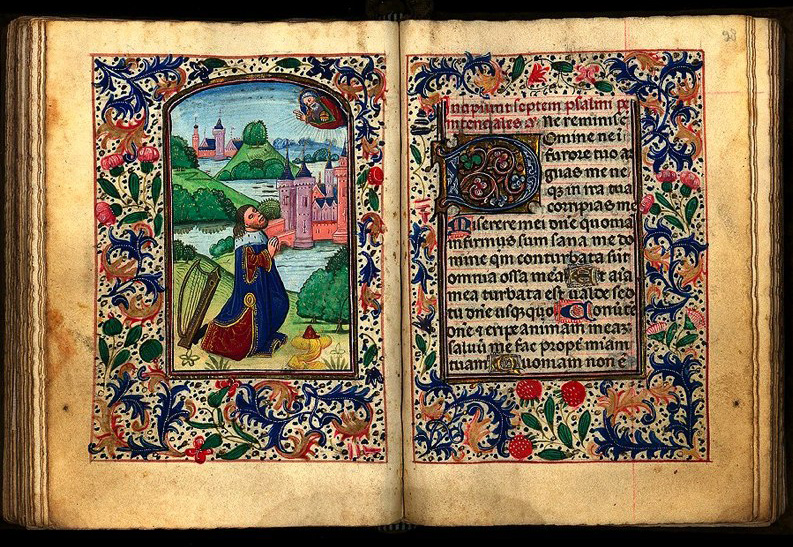 98
Incipiunt septem psalmi pe
nitenciales Ne reminisc
Domine ne i
furore tuo ar
guas me ne
qs in ira tua
corripias me
Miserere mei dñe quonia
infirmus sum sana me do
mine qm conturbata sūt
omnia ossa mea Et aīa
mea turbata est ualde sed
tu dñe usquequo Conuerte
dñe ⁊ eripe animam meaz
saluū me fac propt miam
tuam Quoniam non ē